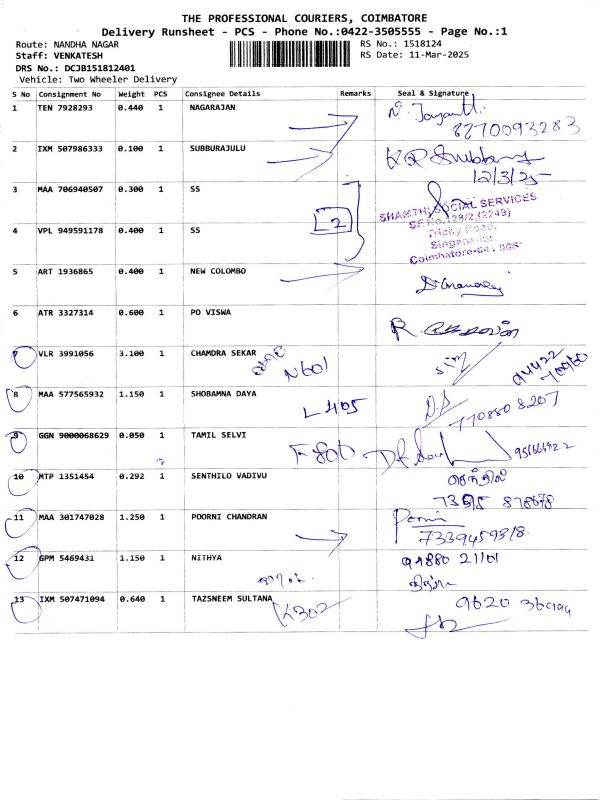 THE PROFESSIONAL COURIERS, COIMBATORE
Delivery Runsheet - PCS - Phone No.:0422-3505555 - Page No.:1
Route: NANDHA NAGAR RS No.: 1518124
Staff: VENKATESH RS Date: 11-Mar-2025
DRS No.: DCJB151812401
Vehicle: Two Wheeler Delivery
S No Consignment No Weight PCS Consignee Details Remarks Seal & Signature
1 TEN 7928293 0.440 1 NAGARAJAN N. Jayanthi
8270093283
2 IXM 507986333 0.100 1 SUBBURAJULU
12/3/25
3 MAA 706940507 0.300 1 SS
SHANTHI SOCIAL SERVICES
4 VPL 949591178 0.400 1 SS 2
Trichy Road,
Singanallur
5 ART 1936865 0.400 1 NEW COLOMBO
6 ATR 3327314 0.600 1 PO VISWA
7 VLR 3991056 3.100 1 CHAMDRA SEKAR
N601
8 MAA 577565932 1.150 1 SHOBAMNA DAYA
L 405 770880 8207
9 GGN 9000068629 0.050 1 TAMIL SELVI
F 806
10 MTP 1351454 0.292 1 SENTHILO VADIVU
11 MAA 301747028 1.250 1 POORNI CHANDRAN
7339459318
12 GPM 5469431 1.150 1 NITHYA 94880 21101
13 IXM 507471094 0.640 1 TAZSNEEM SULTANA K302
9620